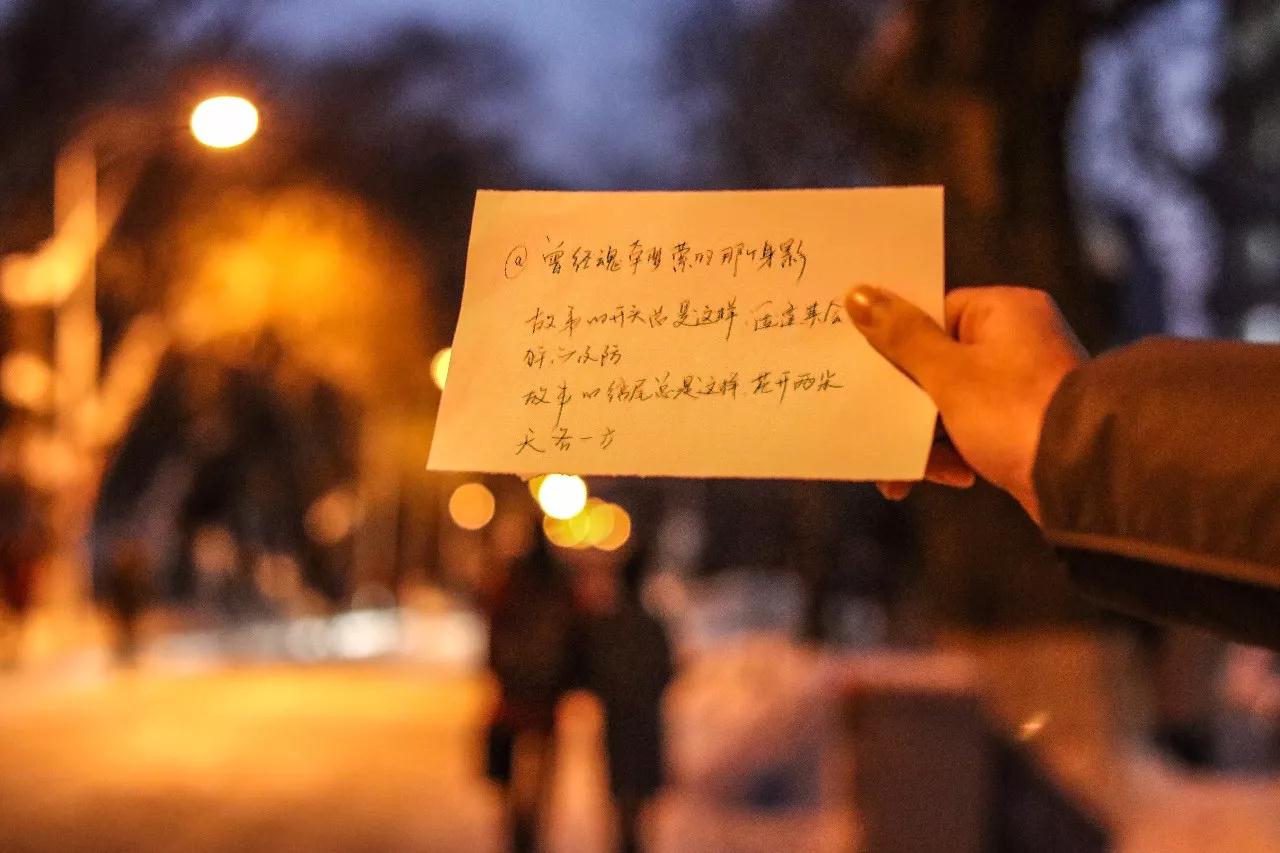 @ 曾经魂牵梦萦的那个身影
故事的开头总是这样,适逢其会
猝不及防
故事的结尾总是这样,花开两朵
天各一方